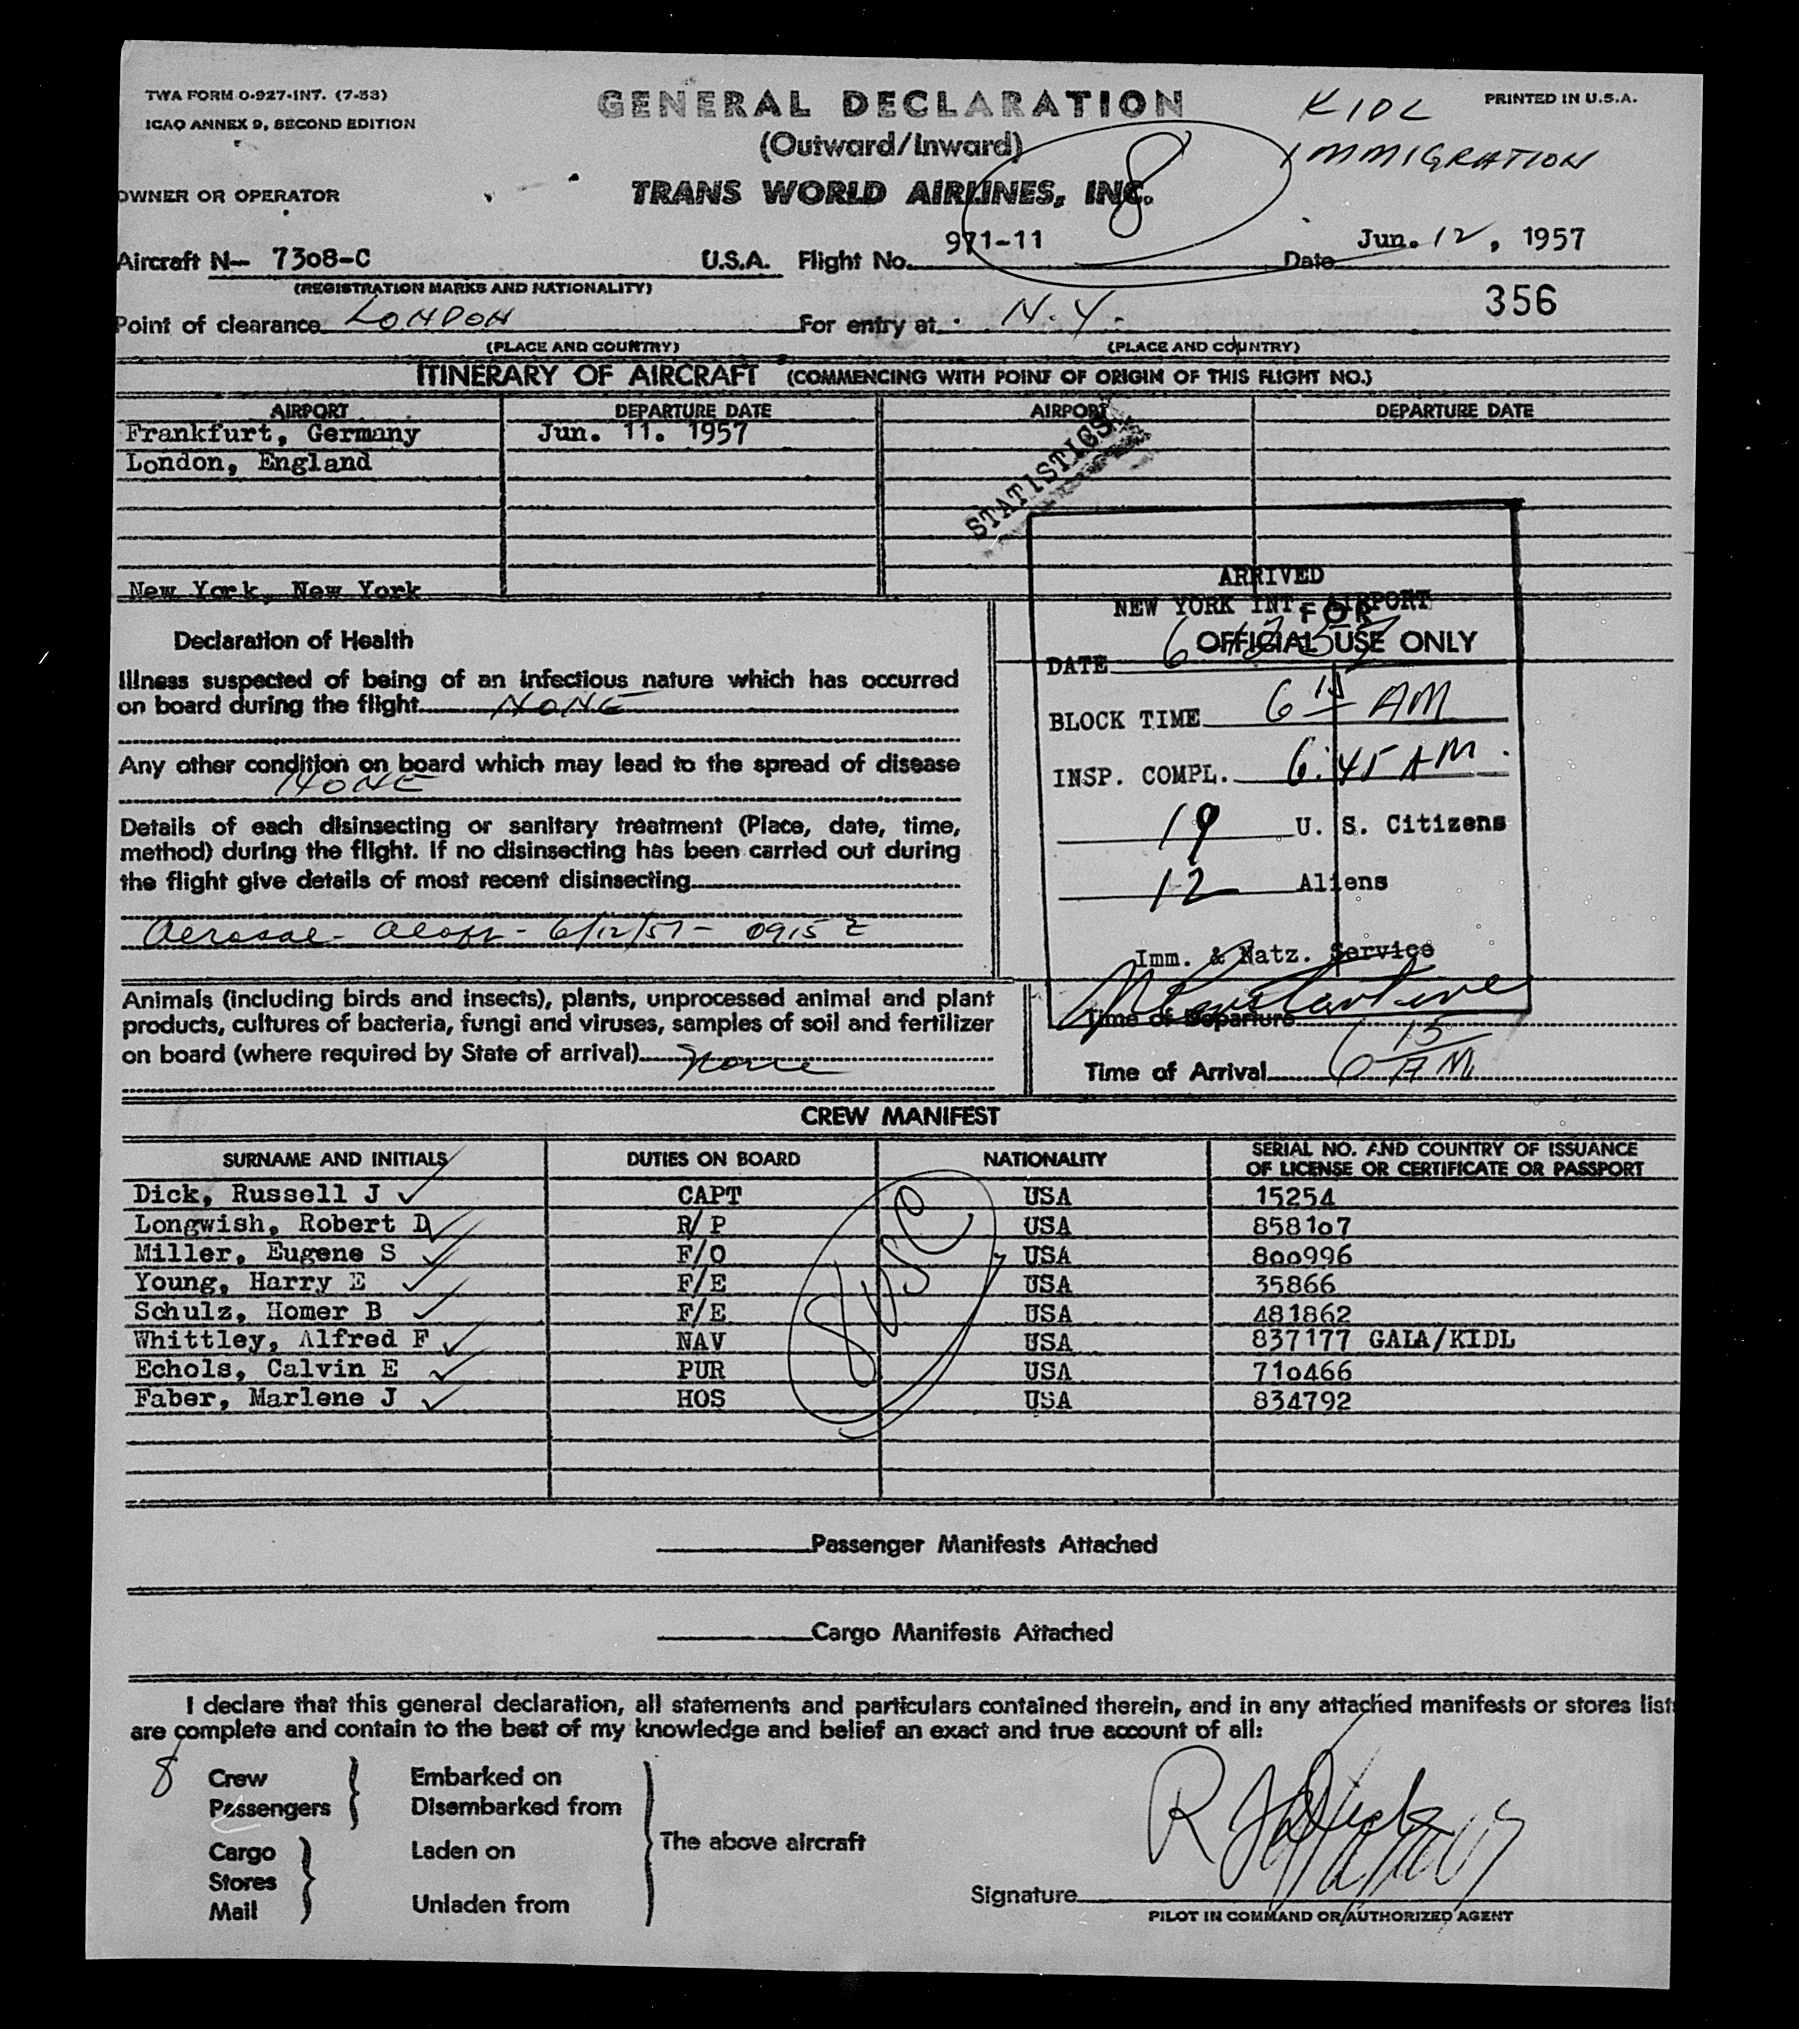 TWA FORM O-927-INT. (7-53)
ICAO ANNEX 9, SECOND EDITION
GENERAL DECLARATION
(Outward/Inward)
TRANS WORLD AIRLINES, INC.
8
KIDL
IMMIGRATION
PRINTED IN U.S.A.
OWNER OR OPERATOR
Aircraft N- 7308-C U.S.A. Flight No. 971-11 Date Jun. 12, 1957
(REGISTRATION MARKS AND NATIONALITY)
356
Point of clearance LONDON For entry at N.Y.
(PLACE AND COUNTRY) (PLACE AND COUNTRY)
ITINERARY OF AIRCRAFT (COMMENCING WITH POINT OF ORIGIN OF THIS FLIGHT NO.)
AIRPORT DEPARTURE DATE AIRPORT DEPARTURE DATE
Frankfurt, Germany Jun. 11. 1957
London, England
STATISTICS
New York, New York
Declaration of Health
Illness suspected of being of an infectious nature which has occurred
on board during the flight NONE
Any other condition on board which may lead to the spread of disease
NONE
Details of each disinsecting or sanitary treatment (Place, date, time,
method) during the flight. If no disinsecting has been carried out during
the flight give details of most recent disinsecting
Aerosol - Aloft - 6/12/57 - 0915 Z
Animals (including birds and insects), plants, unprocessed animal and plant
products, cultures of bacteria, fungi and viruses, samples of soil and fertilizer
on board (where required by State of arrival) None
FOR
OFFICIAL USE ONLY
ARRIVED
NEW YORK INT. AIRPORT
DATE 6
BLOCK TIME 6 15 AM
INSP. COMPL. 6:45 AM.
19 U. S. Citizens
12 Aliens
Imm. & Natz. Service
Time of Departure
Time of Arrival 6 15 AM
CREW MANIFEST
SURNAME AND INITIALS DUTIES ON BOARD NATIONALITY SERIAL NO. AND COUNTRY OF ISSUANCE
OF LICENSE OR CERTIFICATE OR PASSPORT
Dick, Russell J CAPT USA 15254
Longwish, Robert D R/P USA 858107
Miller, Eugene S F/O USA 800996
Young, Harry E F/E USA 35866
Schulz, Homer B F/E USA 481862
Whittley, Alfred F NAV USA 837177 GALA/KIDL
Echols, Calvin E PUR USA 710466
Faber, Marlene J HOS USA 834792
8 USC
Passenger Manifests Attached
Cargo Manifests Attached
I declare that this general declaration, all statements and particulars contained therein, and in any attached manifests or stores list
are complete and contain to the best of my knowledge and belief an exact and true account of all:
8 Crew Embarked on
Passengers Disembarked from
Cargo Laden on The above aircraft
Stores
Mail Unladen from
Signature R J Dick
PILOT IN COMMAND OR AUTHORIZED AGENT